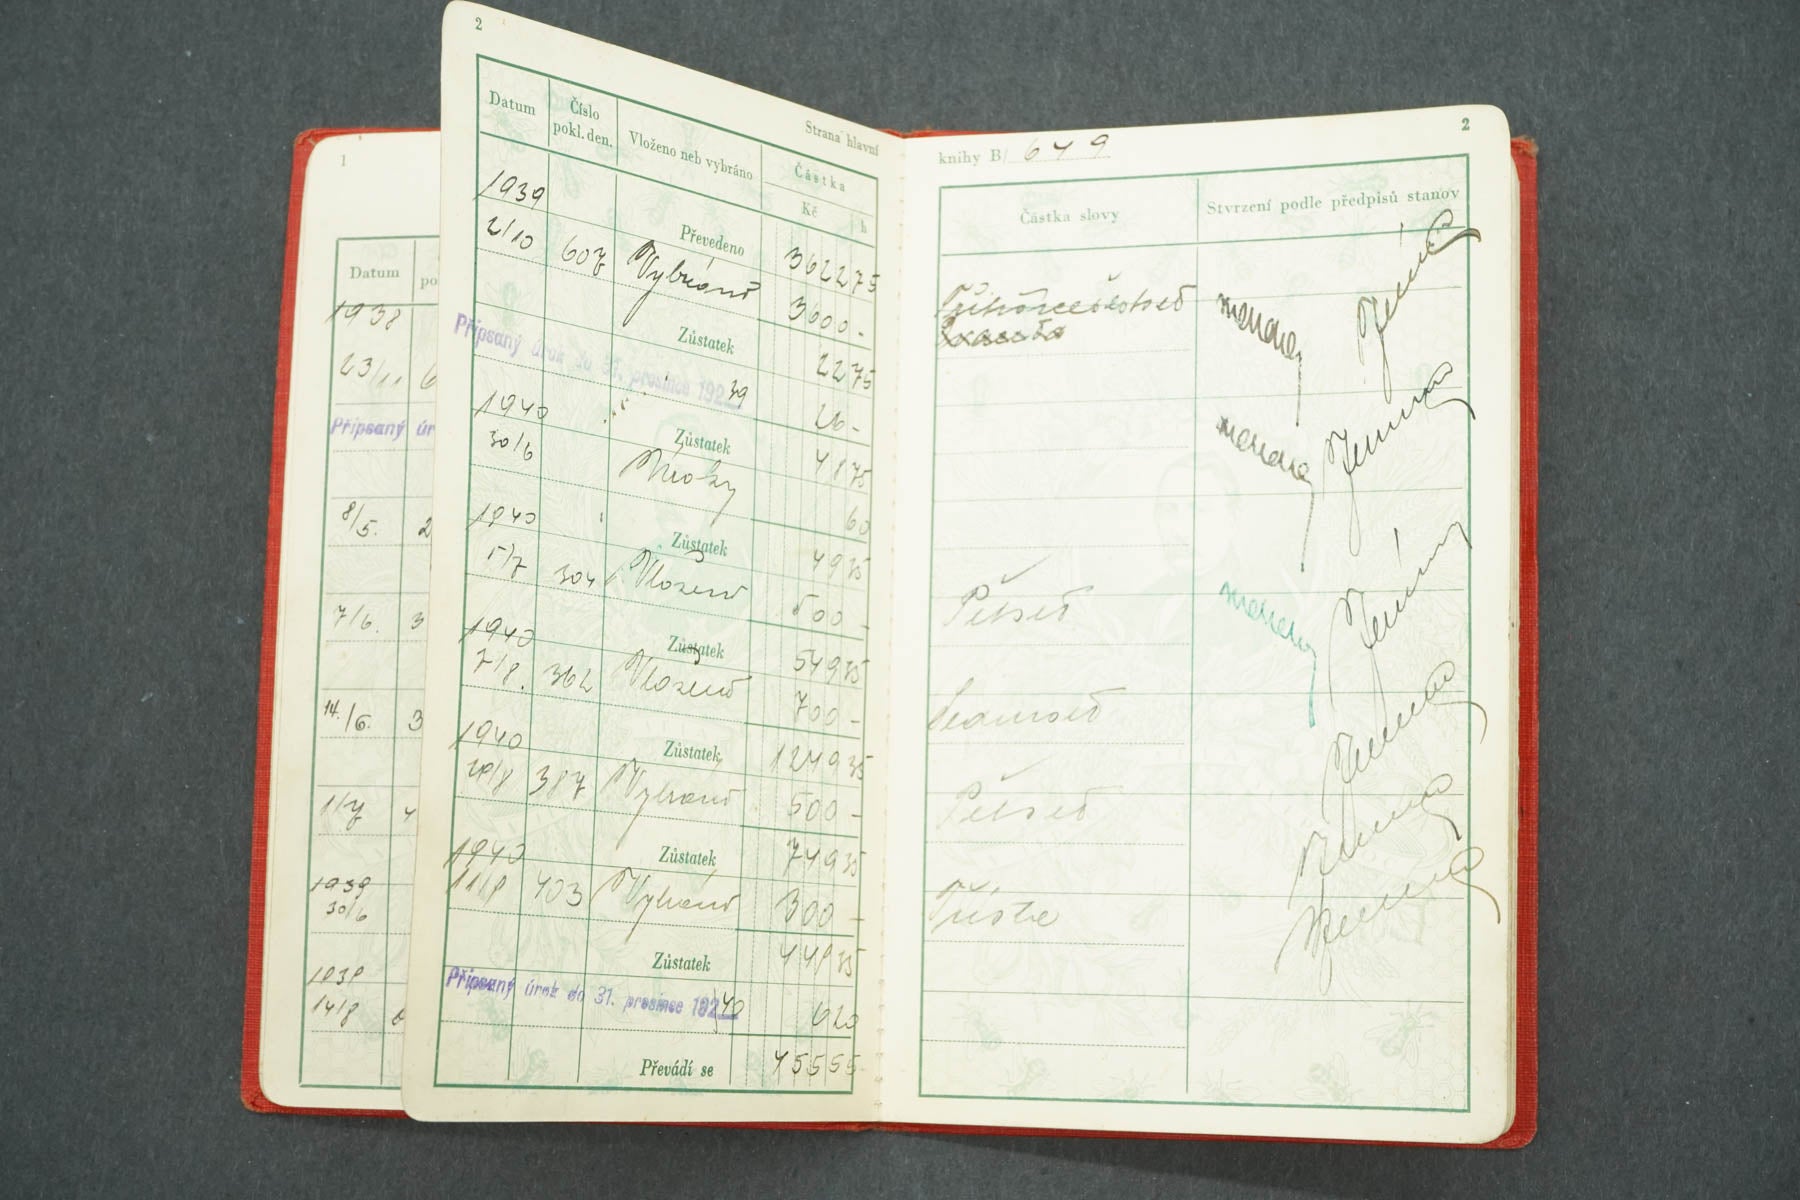 1
Datum
po
1938
23/11 6
Připsaný úr
8/5. 2
7/6. 3
14./6. 3
1/7 4
1939
30/6
1939
14/8 6
2
Strana hlavní
Datum Číslo pokl. den. Vloženo neb vybráno Částka
Kč h
1939 Převedeno 3622 75
2/10 607 Vybráno 3600 -
Zůstatek 22 75
Připsaný úrok do 31. prosince 192 39 26 -
1940 Zůstatek 48 75
30/6 Úroky 60
1940 Zůstatek 49 35
5/7 304 Vloženo 500 -
1940 Zůstatek 549 35
7/8. 362 Vloženo 700 -
1940 Zůstatek 1249 35
20/8 387 Vybráno 500 -
1940 Zůstatek 749 35
11/9 403 Vybráno 300 -
Zůstatek 449 35
Připsaný úrok do 31. prosince 192 40 6 20
Převádí se 455 55
2
knihy B/ 649
Částka slovy Stvrzení podle předpisů stanov
Třitisícešestset
Pětset
Sedmset
Pětset
Třista